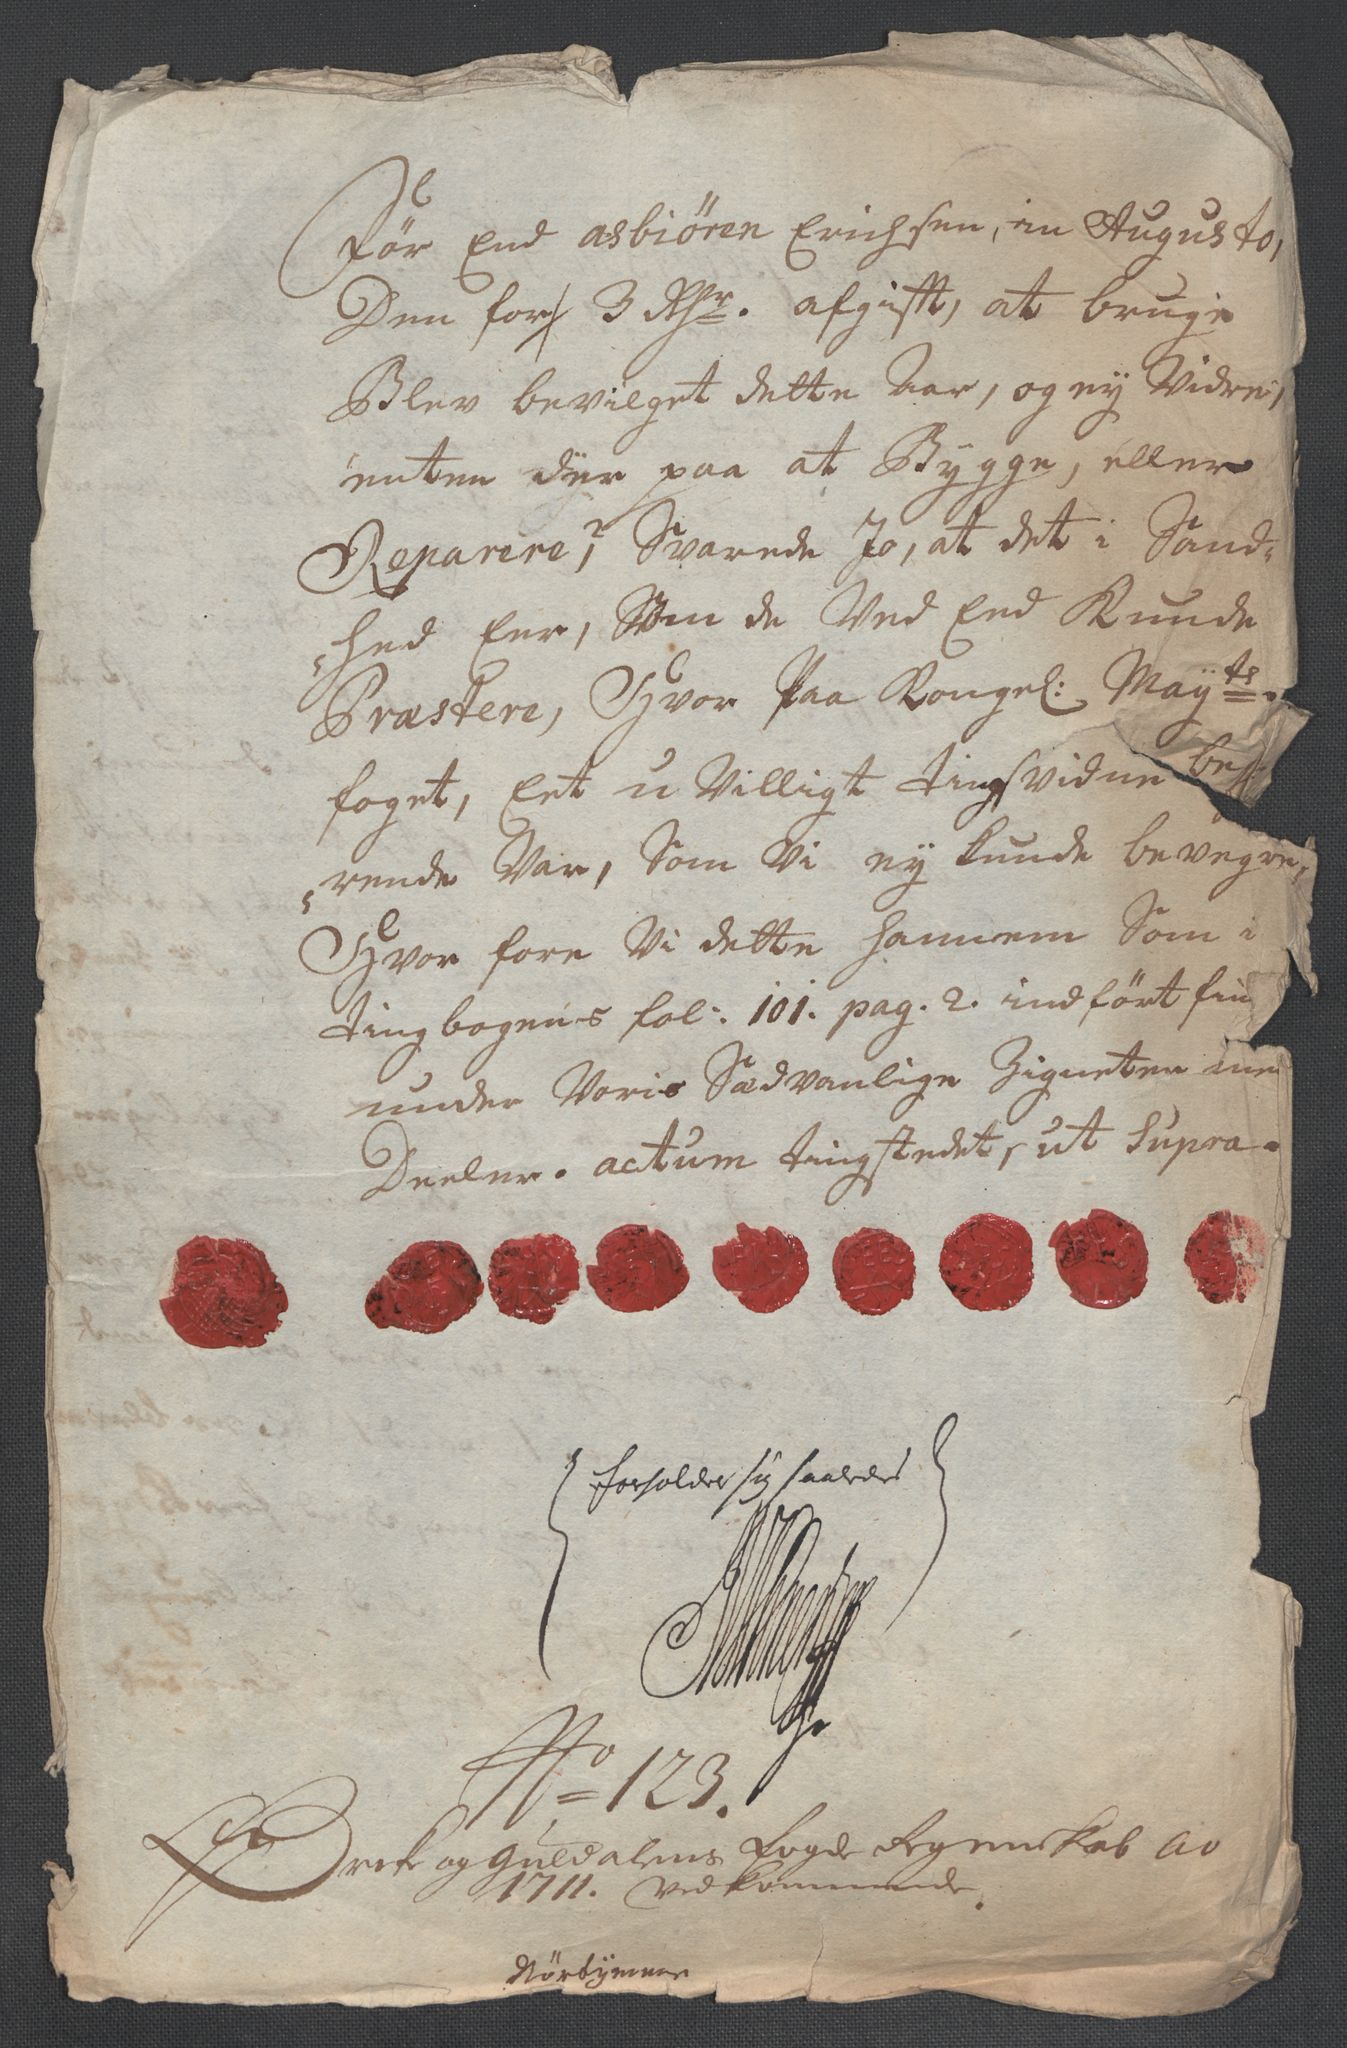 Før End asbiören Erichsen, in Augusto,
Den for 3 Rdr. afgift, at bruge
Blev bevilget dette Aar, og ey Vidre,
enten der paa at Bygge, eller
Reparere, Svarede Jo, at det i Sand-
hed Eer, Som de Ved Eed Kunde
Præstere, Hvor Paa Kongel: Mayts
foget, Eet u Villigt tingsvidne beg
rende Var, Som Vi ey kunde bevegre,
Hvor fore Vi dette hannem Som i
tingbogens fol: 101. pag. 2. indført fin
under Voris Sædvanlige Zigneter me
Deeler. actum tingstedet, ut supra.
forholder sig saaledes
No 123.
Orck og Guldalens Fogde Regenskab Ao
1711. vedkommende.